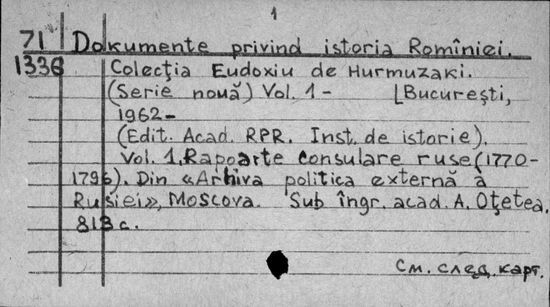 1
71 Dokumente privind istoria Romîniei.
1336 Colecția Eudoxiu de Hurmuzaki.
(Serie nouă) Vol. 1 - [București,
1962-
(Edit. Acad. RPR. Inst. de istorie).
Vol. 1. Rapoarte consulare ruse (1770-
1796). Din «Arhiva politica externă a
Rusiei», Moscova. Sub îngr. acad. A. Oțetea.
813 c.
См. след. карт.